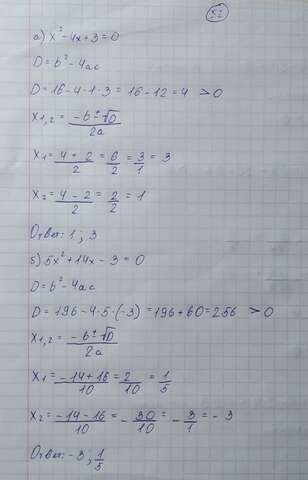 52
а) x² - 4x + 3 = 0
D = b² - 4ac
D = 16 - 4·1·3 = 16 - 12 = 4 > 0
X₁,₂ = (-b ± √D)/2a
X₁ = (4 + 2)/2 = 6/2 = 3/1 = 3
X₂ = (4 - 2)/2 = 2/2 = 1
Ответ: 1 ; 3
б) 5x² + 14x - 3 = 0
D = b² - 4ac
D = 196 - 4·5·(-3) = 196 + 60 = 256 > 0
X₁,₂ = (-b ± √D)/2a
X₁ = (-14 + 16)/10 = 2/10 = 1/5
X₂ = (-14 - 16)/10 = -30/10 = -3/1 = -3
Ответ: -3 ; 1/5